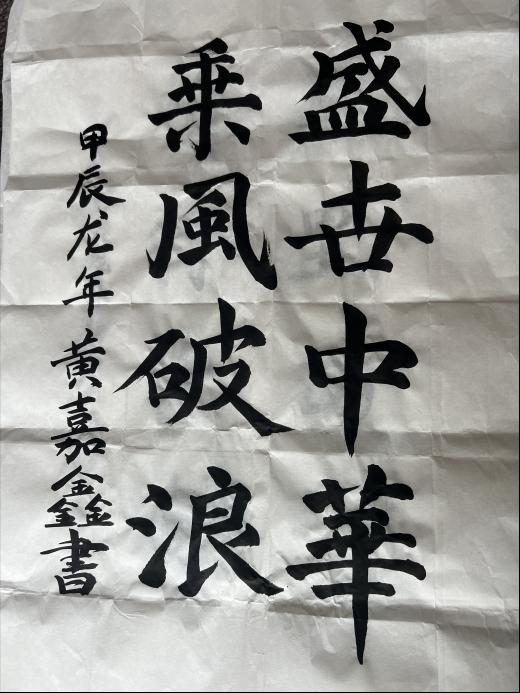 盛世中華
乘風破浪
甲辰龙年黄嘉鑫書